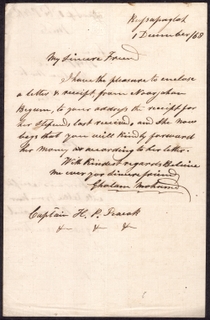 1 December /48
My Sincere Friend
I have the pleasure to enclose
a letter & receipt from Noorjahan
Begum, to your address the receipt for
her stipend last received, and she now
begs that you will kindly forward
her money as according to her letter.
With Kindest regards Believe
me ever your sincere friend
Gholam Mohumed
Captain H. P.